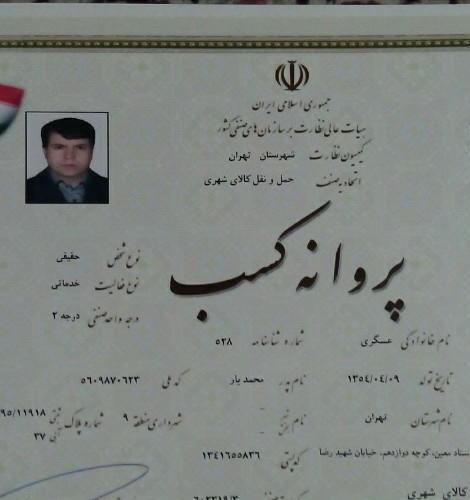 جمهوری اسلامی ایران
هیات عالی نظارت بر سازمان‌های صنفی کشور
کمیسیون نظارت شهرستان تهران
اتحادیه صنف حمل و نقل کالای شهری
پروانه کسب
نوع شخص حقیقی
نوع فعالیت خدماتی
درجه واحد صنفی درجه ۲
نام خانوادگی عسگری شماره شناسنامه ۵۲۸
تاریخ تولد ۱۳۵۴/۰۴/۰۹ نام پدر محمد یار کد ملی ۵۶۰۹۸۷۰۶۲۳
نام شهرستان تهران نام بخش - شهرداری منطقه ۹ شماره پلاک ثبتی ۹۵/۱۱۹۱۸
آبی ۲۷
ستاد معین، کوچه دوازدهم، خیابان شهید رضا کدپستی ۱۳۴۱۶۵۵۸۳۶
کالای شهری